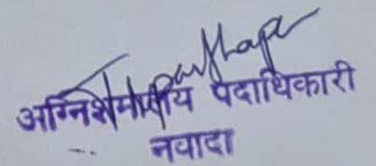 अग्निशमालय पदाधिकारी
नवादा